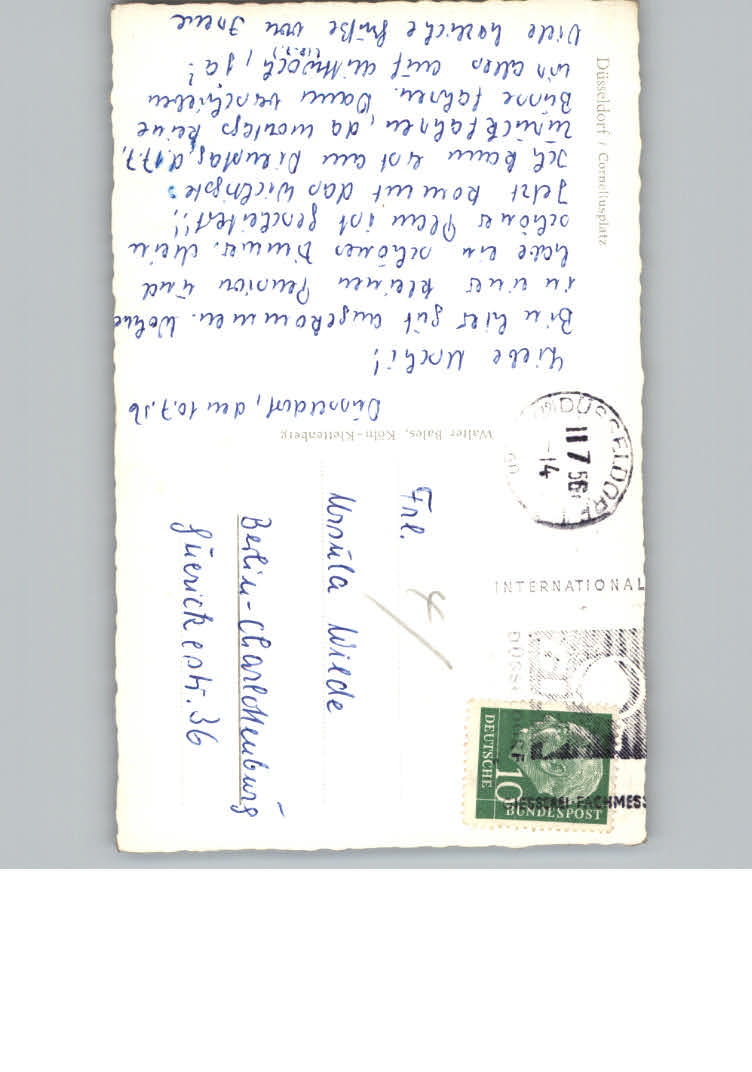 Düsseldorf / Corneliusplatz
Düsseldorf, den 10.7.56
Liebe Uschi!
Bin hier gut angekommen. Wohne
in einer kleinen Pension und
habe ein schönes Zimmer. Mein
schöner Plan ist gescheitert!!
Jetzt kommt das Wichtigste:
Ich kann erst am Dienstag, d. 17.7.
zurückfahren, da montags keine
Busse fahren. Dann verschieben
wir alles auf Mittwoch, ja?
(18.7.)
Viele herzliche Grüße von Irene
Walter Bales, Köln-Klettenberg
Frl.
Ursula Wilde
Berlin-Charlottenburg
Guerickestr. 36
DÜSSELDORF
11 7 56
-14
INTERNATIONAL
DÜSS
GIESSEREI-FACHMESS
DEUTSCHE
10
BUNDESPOST